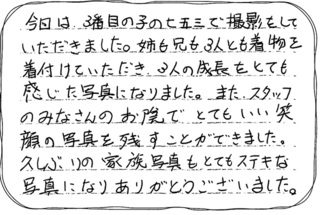 今日は、3番目の子の七五三で撮影をして
いただきました。姉も兄も3人とも着物を
着付けていただき、3人の成長をとても
感じた写真になりました。また、スタッフ
のみなさんのお陰で とてもいい笑
顔の写真を残すことができました。
久しぶりの家族写真もとてもステキな
写真になりありがとうございました。